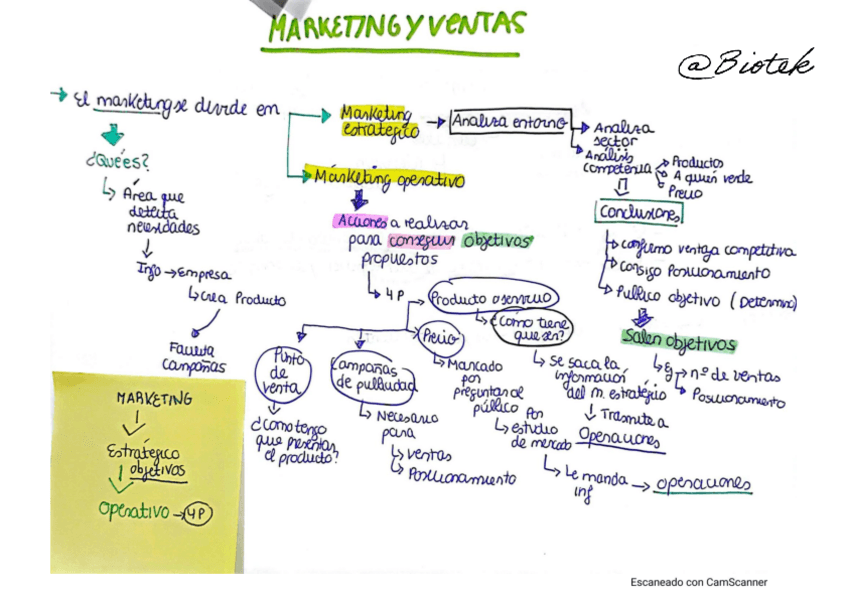 MARKETING Y VENTAS
@Biotek
→ El marketing se divide en
Marketing
estratégico
→ Analiza entorno
Analiza
sector
Análisis
competencia
Productos
A quien vende
Precio
Conclusiones
Confirmo ventaja competitiva
Consigo Posicionamiento
Publico objetivo (Determino)
Salen objetivos
Ej → nº de ventas
Posicionamiento
Marketing operativo
Acciones a realizar
para conseguir objetivos
propuestos
4P
Producto o servicio
¿Como tiene
que ser?
Se saca la
información
del m. estratégico
Trasmite a
Operaciones
Precio
Marcado
por
preguntas al
público
Por
estudio
de mercado
Le manda → operaciones
inf
Campañas
de publicidad
Necesario
para
ventas
Posicionamiento
Punto
de
venta
¿Como tengo
que presentar
el producto?
¿Qué es?
Área que
detecta
necesidades
Info → Empresa
Crea Producto
Facilita
campañas
MARKETING
Estratégico
objetivos
Operativo → 4P
Escaneado con CamScanner